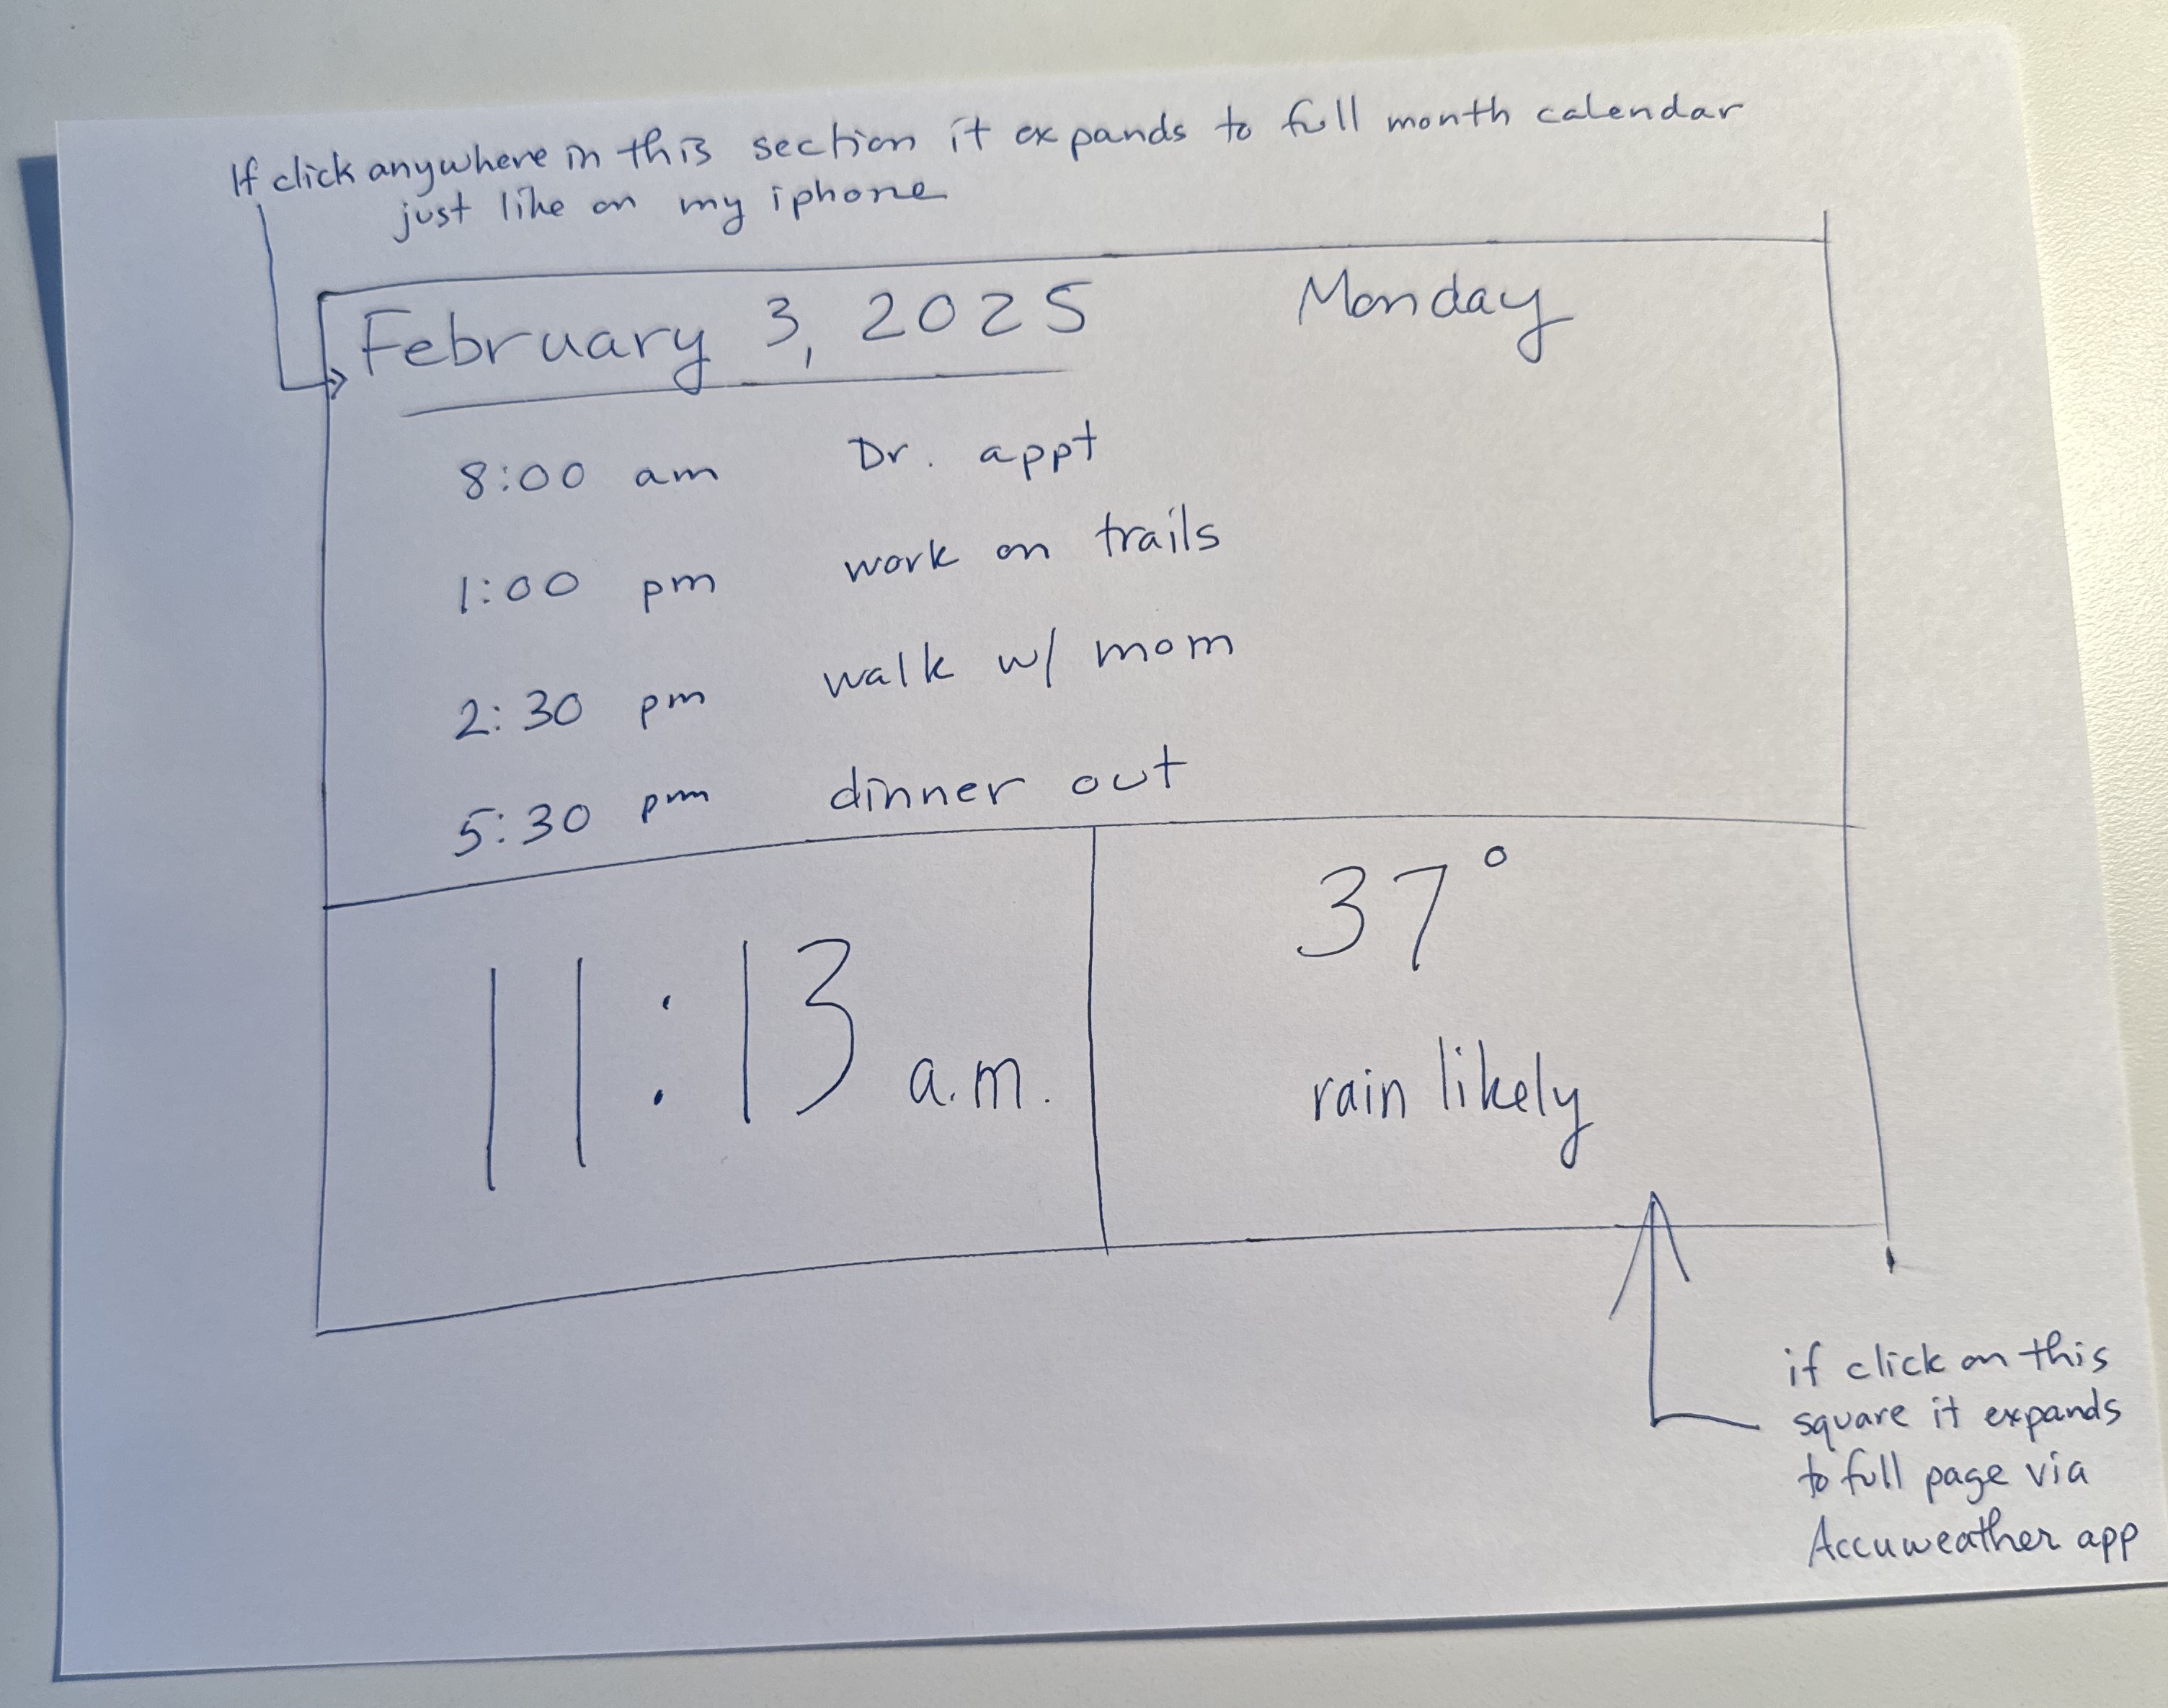 If click anywhere in this section it expands to full month calendar
just like on my iphone
February 3, 2025 Monday
8:00 am Dr. appt
1:00 pm work on trails
2:30 pm walk w/ mom
5:30 pm dinner out
11:13 a.m.
37°
rain likely
if click on this
square it expands
to full page via
Accuweather app